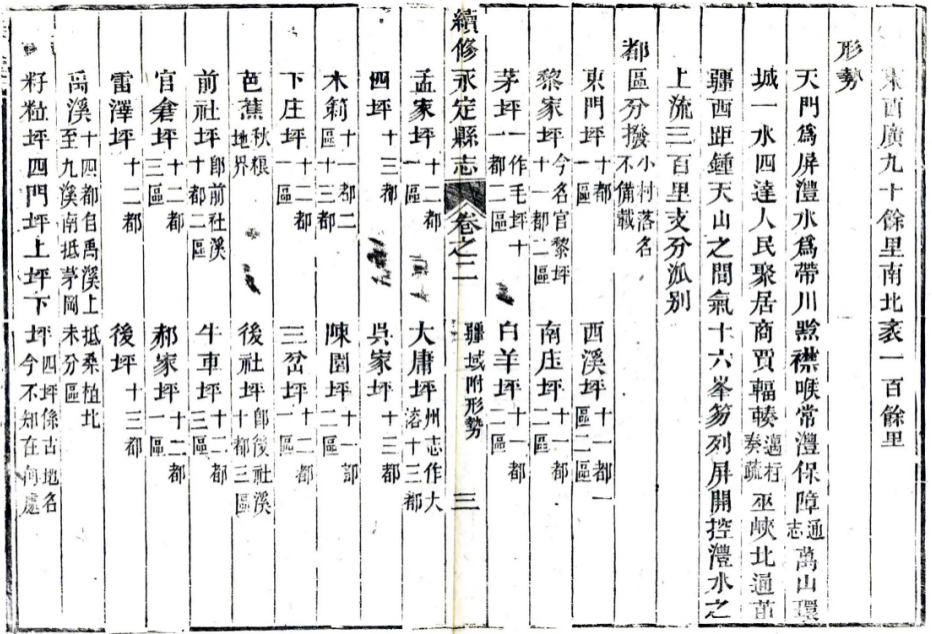 東西廣九十餘里南北袤一百餘里
形勢
天門爲屏澧水爲帶川黔襟喉常澧保障通志萬山環
城一水四達人民聚居商賈輻輳邁柱奏疏巫峽北通苗
疆西距鍾天山之間氣十六峯笏列屏開控澧水之
上流三百里支分派別
都區分撥小村落名不備載
東門坪十都一區 西溪坪十一都一區二區
黎家坪今名官黎坪十一都二區 南庄坪十一都二區
茅坪一作毛坪十一都二區 白羊坪十一都二區
續修永定縣志 卷之二 疆域附形勢 三
孟家坪十二都一區 大庸坪州志作大溶十三都
四坪十三都 吳家坪十三都
木莿十一都二區十三都 陳園坪十一都
下庄坪十二都一區 三岔坪十二都一區
芭蕉秋糧地界 後社坪卽後社溪十都三區
前社坪卽前社溪十都二區 牛車坪十二都三區
官倉坪十二都三區 郝家坪十二都一區
雷澤坪十二都 後坪十三都
禹溪十四都自禹溪上抵桑植北至九溪南抵茅岡未分區
籽粒坪四門坪上坪下坪四坪係古地名今不知在何處